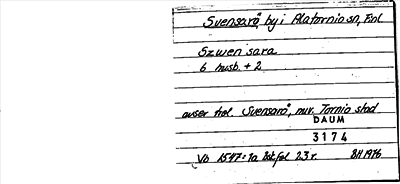 Svensarå, by i Alatornio sn, Finl
Szwensara
6 husb. + 2
avser trol. Svensarå, nuv. Tornio stad
DAUM
3174
Vb 1547:1a Bl.fol 23 r. BH 1976